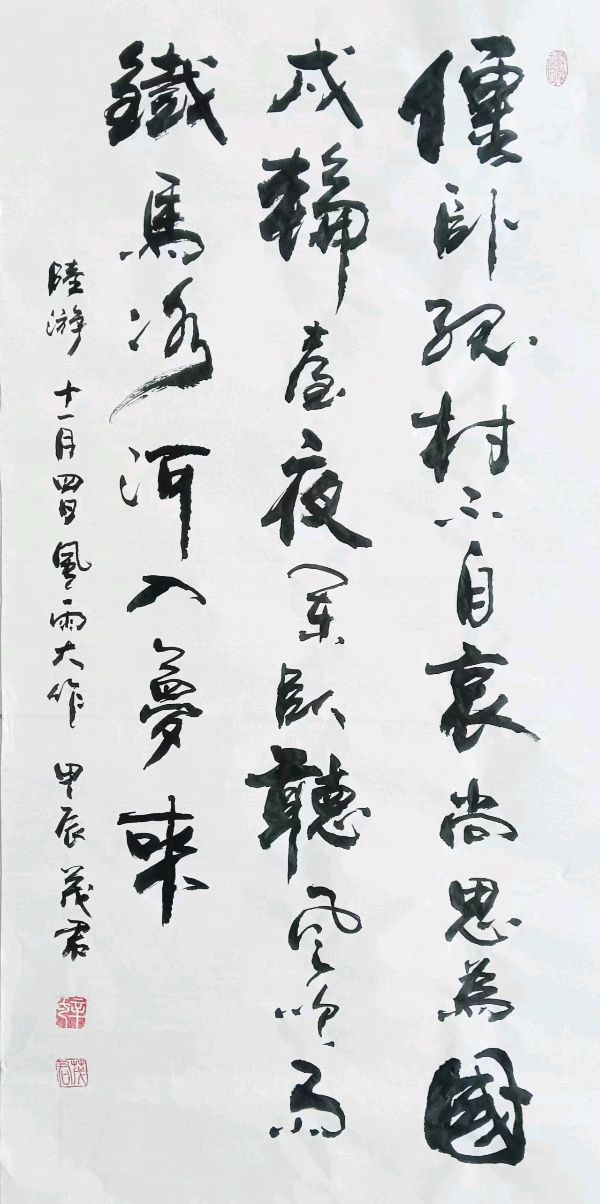 僵卧孤村不自哀尚思為國
戍輪臺夜闌卧聽風吹雨
鐵馬冰河入夢來
陸游 十一月四日風雨大作 甲辰 茂君
茂君